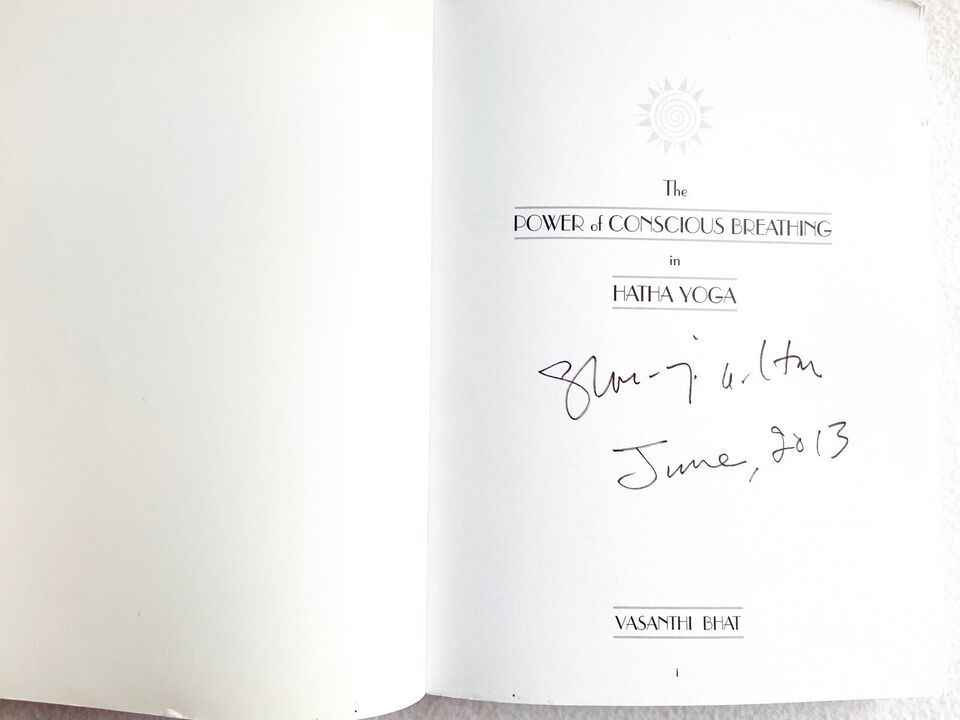 The
POWER of CONSCIOUS BREATHING
in
HATHA YOGA
June, 2013
VASANTHI BHAT
i